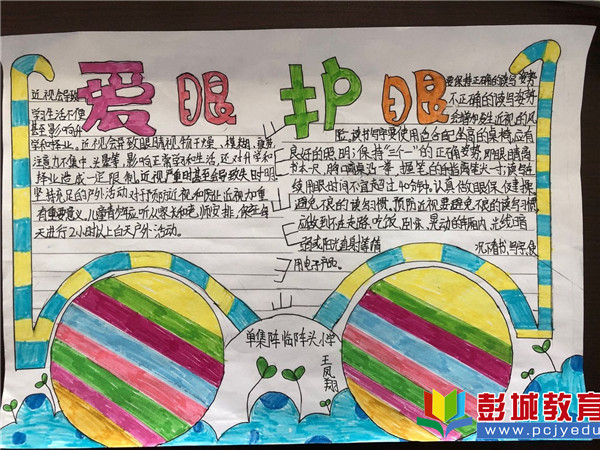 爱眼护眼
近视会导致
学习生活不便
甚至影响升
学和择业。近视会导致眼睛视物干涩、模糊、疲劳
注意力不集中、头晕等，影响正常学习和生活，还对升学和
择业造成一定限制，近视严重时甚至会导致失明。
坚持充足的户外活动对于预防近视和防止近视力重
有重要意义，儿童青少年应听从家长和老师安排，做到每
天进行2小时以上白天户外活动。
要保持正确的读写姿势
不正确的读写姿势
会增加发生近视的风
险，读书写字要使用适合的坐高的桌椅，应有
良好的照明；保持"三个一"的正确姿势，即眼睛离
书本一尺，胸口离桌沿一拳，握笔的手指离笔尖一寸；读写连
续用眼时间不宜超过40分钟，认真做眼保健操。
避免不良的读写习惯，预防近视要避免不良的读写习惯，
应做到不在走路、吃饭、卧床、晃动的车厢内，光线暗
弱或阳光直射等情
况下看书、写字、使
用电子产品。
单集阵临阵头小学
王凤翔
彭城教育
www.pcjyedu